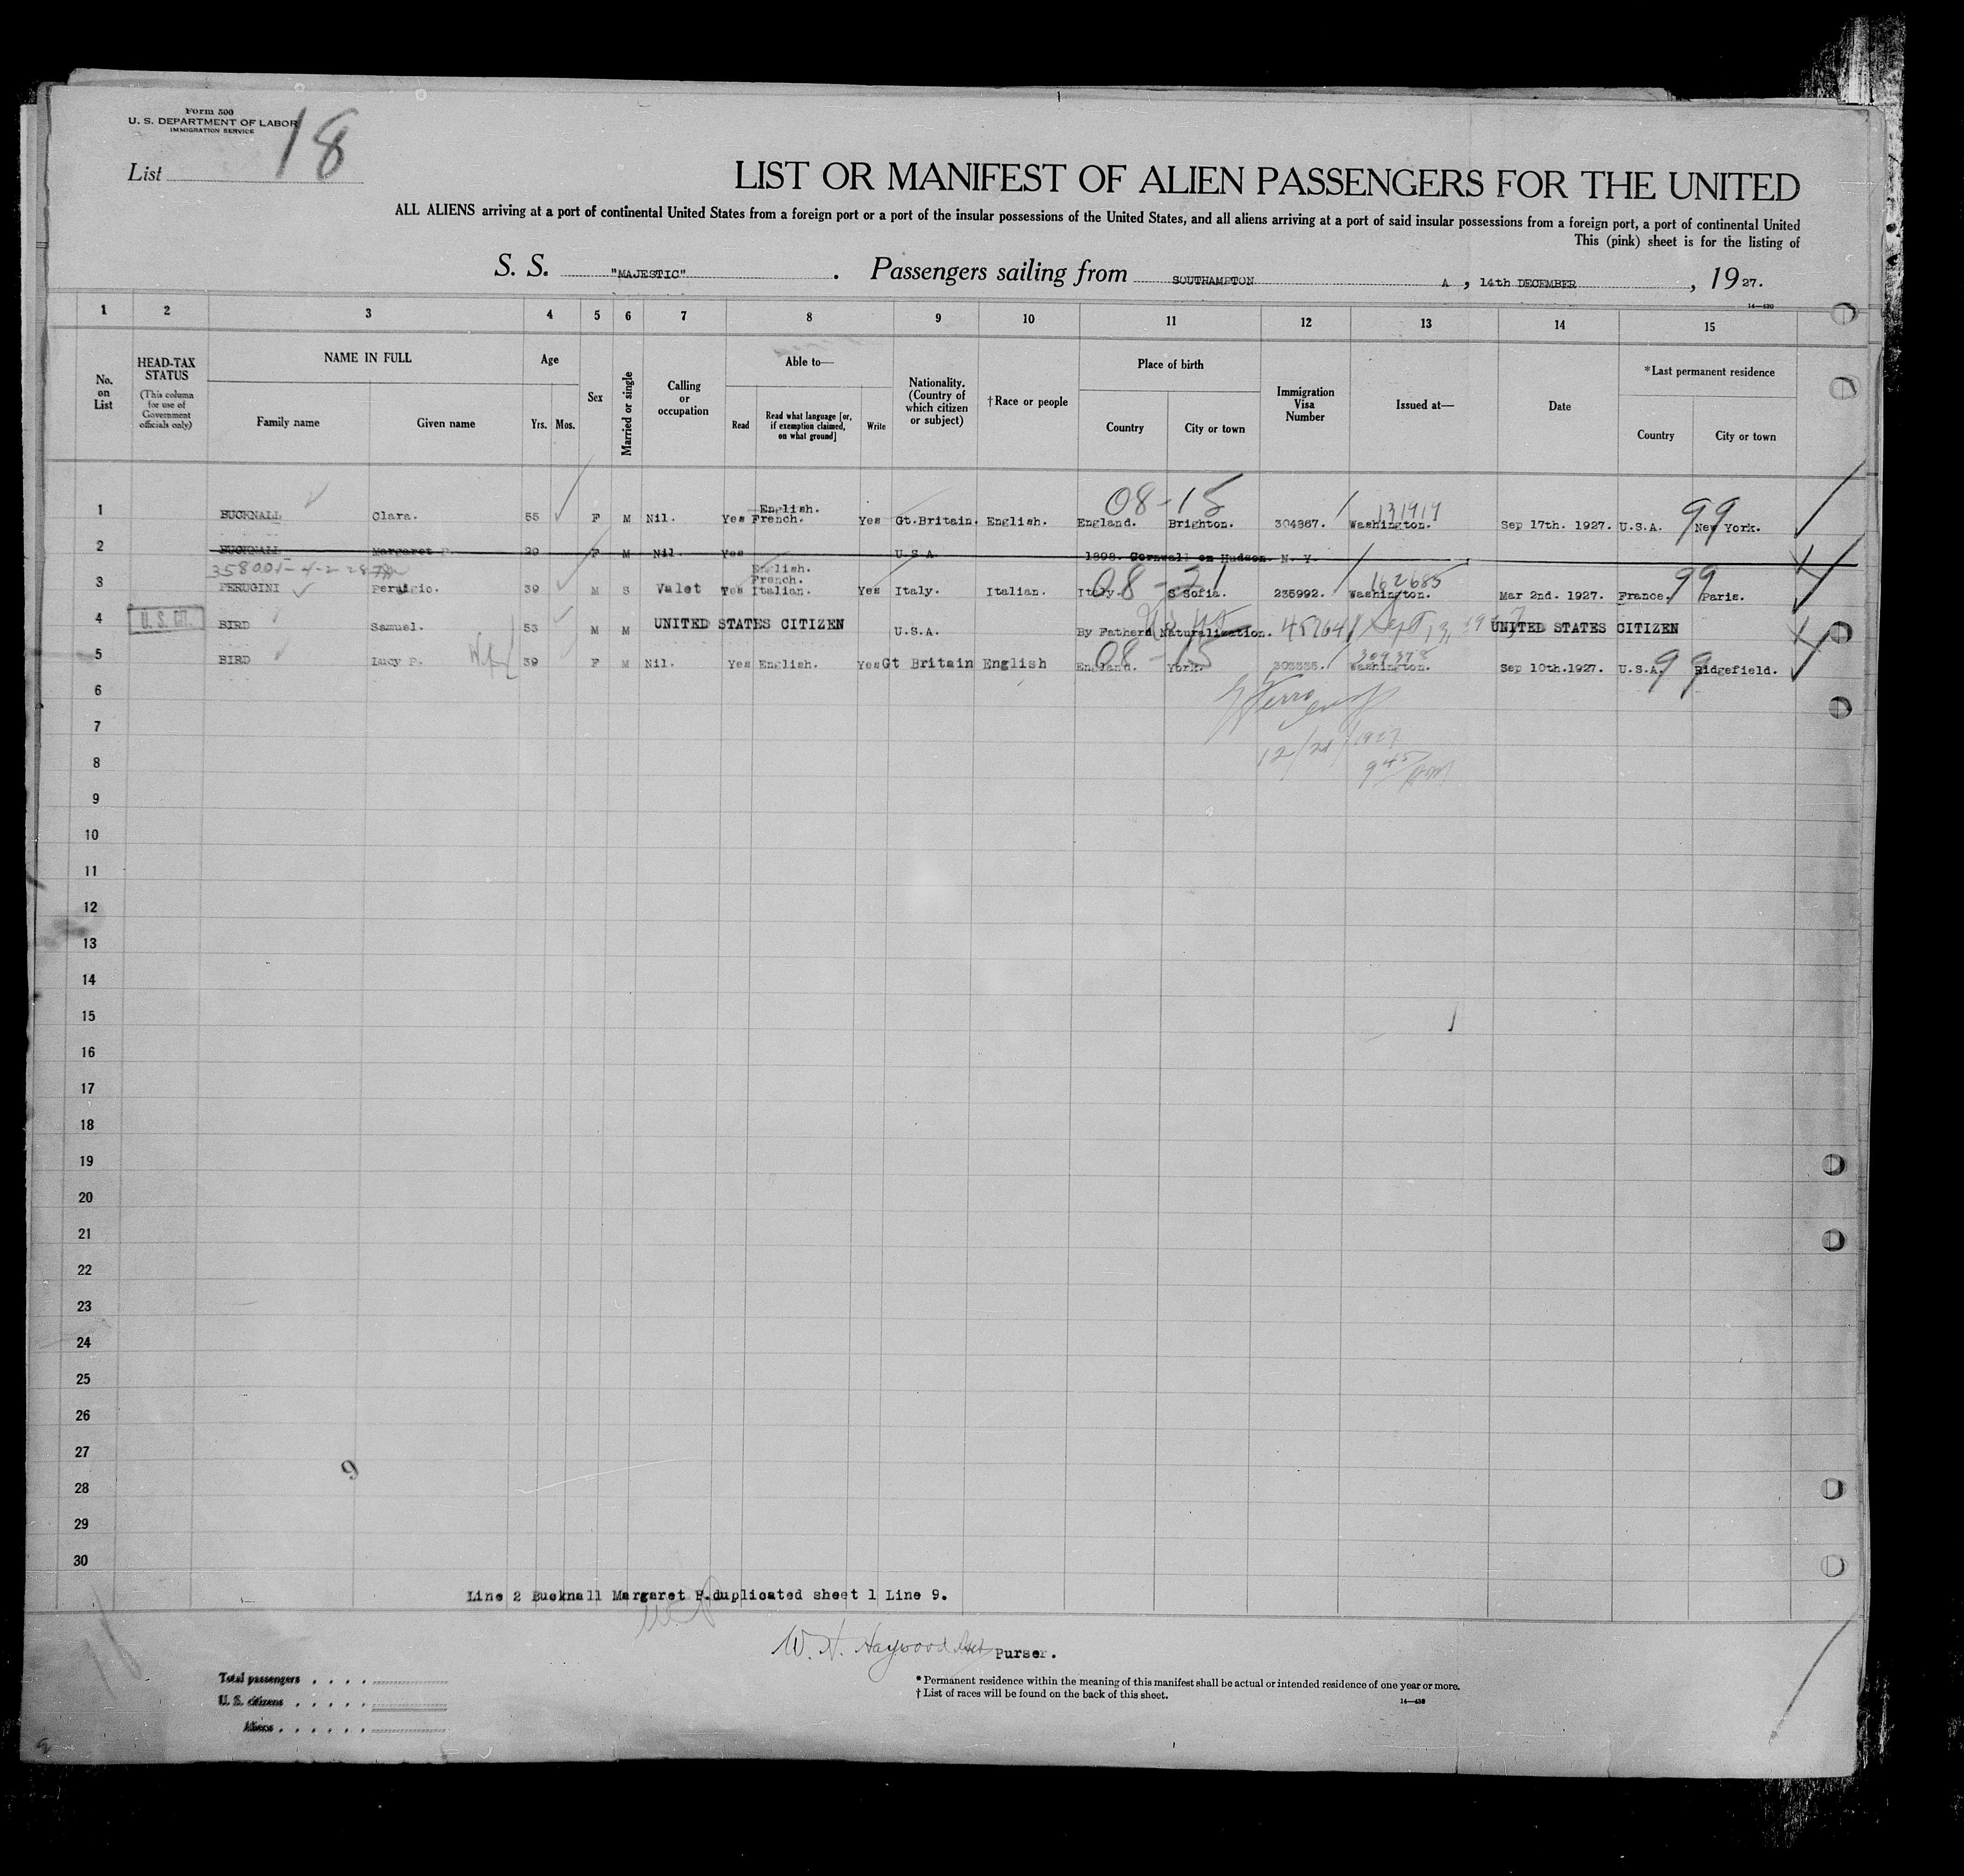 Form 500
U. S. DEPARTMENT OF LABOR
IMMIGRATION SERVICE
List 18
LIST OR MANIFEST OF ALIEN PASSENGERS FOR THE UNITED
ALL ALIENS arriving at a port of continental United States from a foreign port or a port of the insular possessions of the United States, and all aliens arriving at a port of said insular possessions from a foreign port, a port of continental United
This (pink) sheet is for the listing of
S. S. "MAJESTIC". Passengers sailing from SOUTHAMPTON A, 14th DECEMBER, 1927.
14—430
1 2 3 4 5 6 7 8 9 10 11 12 13 14 15
No. on List
HEAD-TAX STATUS
(This column for use of Government officials only)
NAME IN FULL
Family name Given name
Age
Yrs. Mos.
Sex
Married or single
Calling or occupation
Able to—
Read
Read what language [or, if exemption claimed, on what ground]
Write
Nationality. (Country of which citizen or subject)
†Race or people
Place of birth
Country City or town
Immigration Visa Number
Issued at—
Date
*Last permanent residence
Country City or town
08-15 131919 99
English.
1 BUCKNALL Clara. 55 F M Nil. Yes French. Yes Gt.Britain. English. England. Brighton. 304867. Washington. Sep 17th. 1927. U.S.A. New York.
2 BUCKNALL Margaret P. 29 F M Nil. Yes U S A 1898. Cornwall on Hudson. N. Y.
English.
French.
08-21 162685 99
3 PERUGINI 39 M S Valet Yes Italian. Yes Italy. Italian. Italy. S Sofia. 235992. Washington. Mar 2nd. 1927. France. Paris.
U. S. CIT.
4 BIRD Samuel. 53 M M UNITED STATES CITIZEN U.S.A. By Fathers Naturalization. UNITED STATES CITIZEN
08-15 309378 99
5 BIRD Lucy P. 39 F M Nil. Yes English. Yes Gt Britain English England. York. 303335. Washington. Sep 10th.1927. U.S.A. Ridgefield.
6
12/21/1927
7
9 45 AM
8
9
10
11
12
13
14
15
16
17
18
19
20
21
22
23
24
25
26
27
9
28
29
30
Line 2 Bucknall Margaret P.duplicated sheet 1 Line 9.
W. H. Haywood Purser.
Total passengers
U. S. citizens
Aliens
* Permanent residence within the meaning of this manifest shall be actual or intended residence of one year or more.
† List of races will be found on the back of this sheet.
14—430